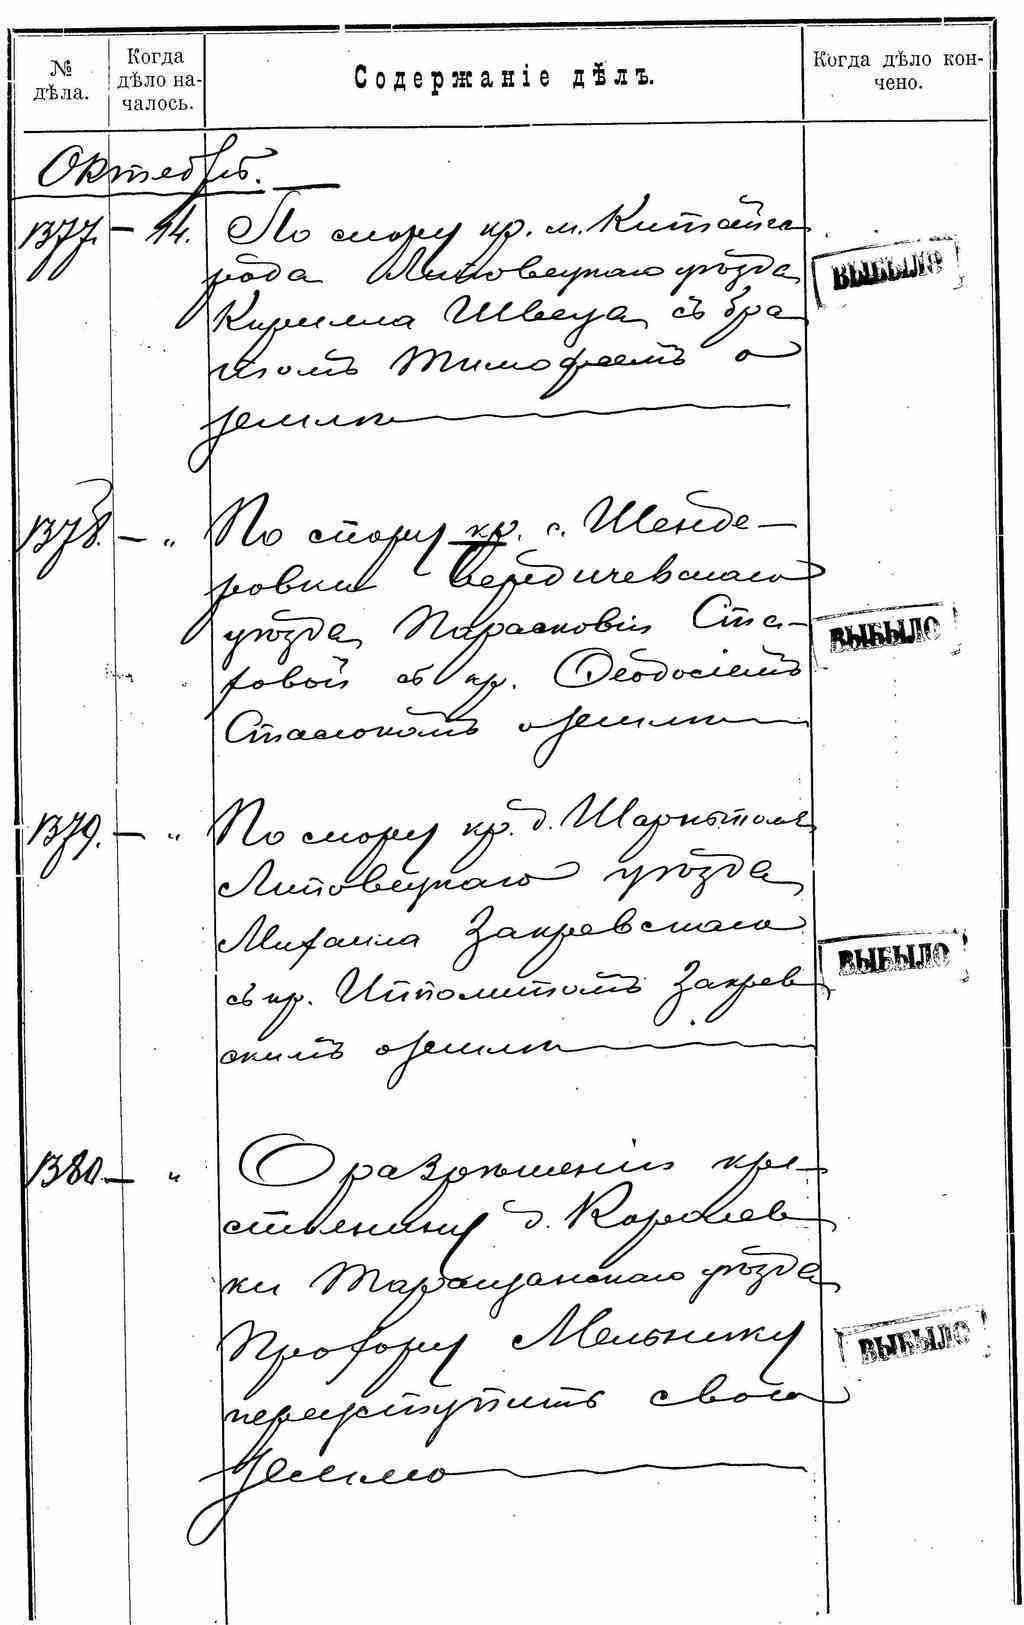 № дѣла.
Когда дѣло на-
чалось.
Содержаніе дѣлъ.
Когда дѣло кон-
чено.
Октябрь.
1377. — 14. По спору кр. м. Китайго
рода Липовецкаго уѣзда
Кирилла Швеца съ бра
томъ Тимофеемъ о
землѣ
ВЫБЫЛО
1378. — „ По спору кр. с. Шенде-
ровки Бердичевскаго
уѣзда Парасковіи Ста-
ховой съ кр. Ѳеодосіемъ
Стасюкомъ о землѣ
ВЫБЫЛО
1379. — „ По спору кр. д. Шарнополя
Липовецкаго уѣзда
Михаила Закревскаго
съ кр. Ипполитомъ Закрев
скимъ о землѣ
ВЫБЫЛО
1380. — „ О разрѣшеніи кре-
стьянину д. Королев
ки Таращанскаго уѣзда
Прохору Мельнику
переуступить свою
землю
ВЫБЫЛО